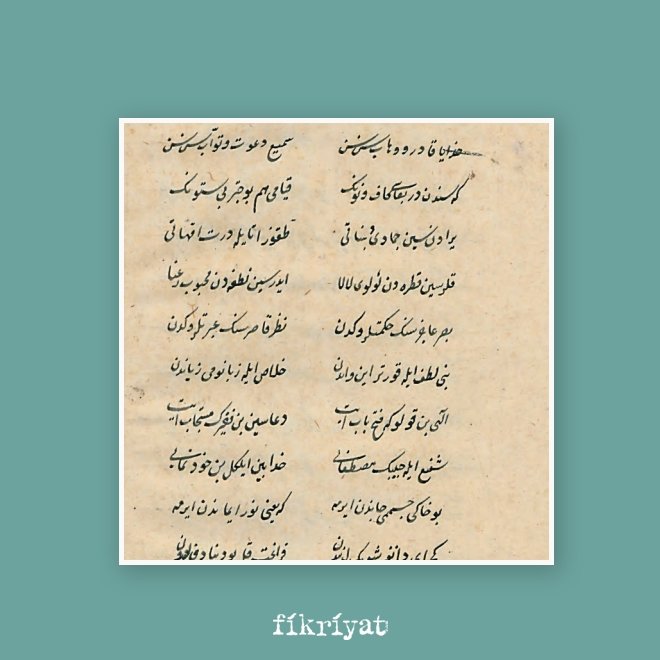 خدایا قادر و وهاب سن سن سمیع دعوت و تواب سن سن
که سندن در بقاسی کاف و نونک قیامی هم بو چتر بی ستونک
یرادن سین جمادی و نباتی طقوز ایله درت امهاتی
قلرسین قطره دن لولوی لالا ایدرسین نطفه دن محبوب رعنا
بصر عاجز سنک حکمتلروکدن نظر قاصر سنک عبرتلروکدن
بنی لطف ایله قورتر این و آندن خلاص ایله زبانومی زیاندن
الهی بن قولوکه فتح باب ایت دعاسین بن فقیرک مستجاب ایت
شفیع ایله حبیبک مصطفایی خدابین ایلکل بن خودنمایی
بو خاکی جسمی جاندن ایرمه که یعنی نور ایماندن ایرمه
fikriyat